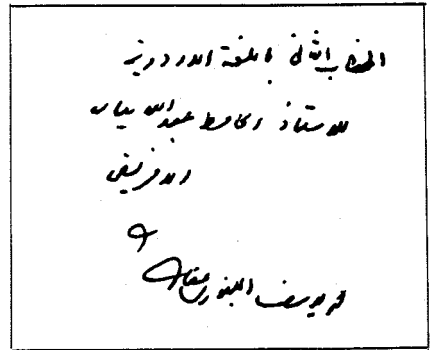 الخطاب الثاني باللغة الاردوية
للاستاذ الحافظ عبد الله بيات
الافريقي
محمد يوسف البنوري عفا